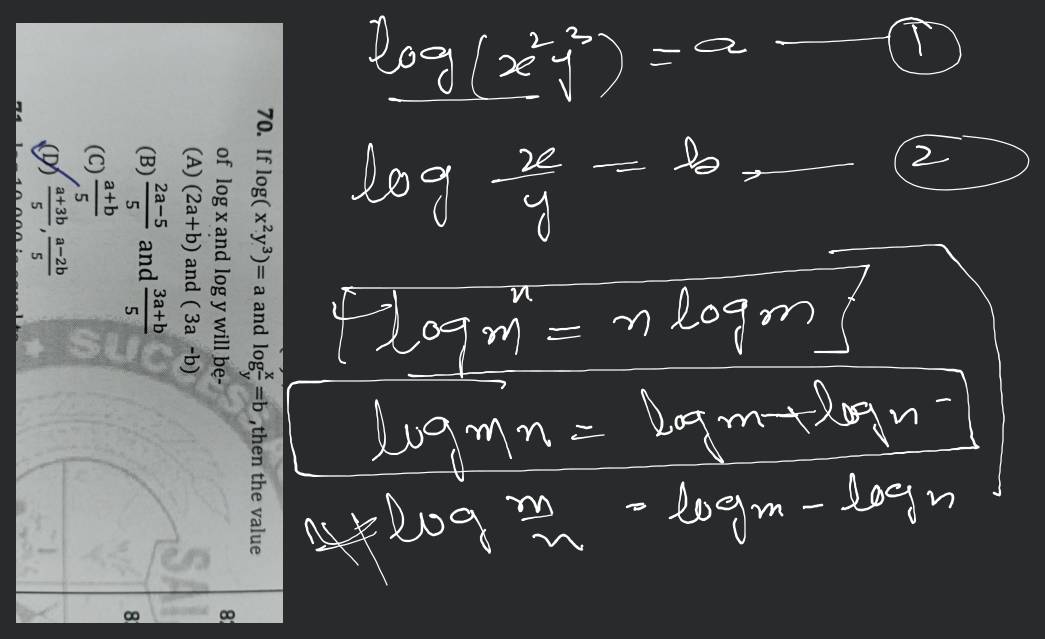 70. If log( x²y³)= a and log x/y =b ,then the value
of log x and log y will be-
(A) (2a+b) and ( 3a -b)
(B) 2a-5/5 and 3a+b/5
(C) a+b/5
(D) a+3b/5, a-2b/5
SUCCESS
SAI
8
8
log(x²y³) = a 1
log x/y = b 2
log mⁿ = n log m
log mn = log m + log n
log m/n = log m - log n